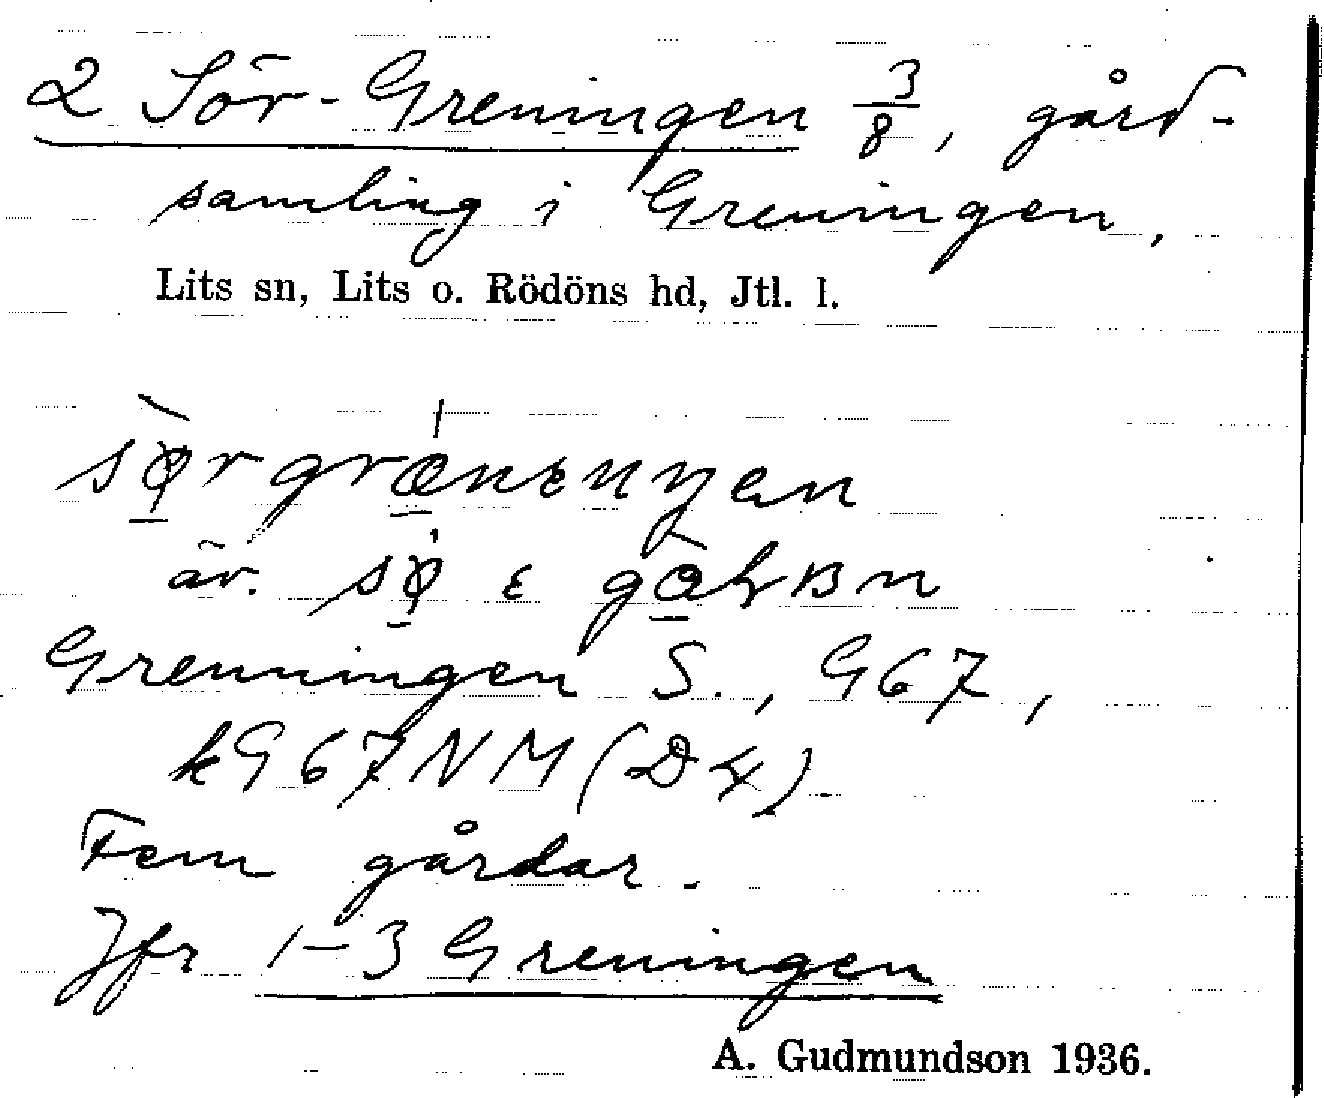 2 Sör-Greningen 3/8, gård-
samling i Greningen.
Lits sn, Lits o. Rödöns hd, Jtl. l.
äv.
Grenningen S., G67,
kG67NM (D4)
Fem gårdar.
Jfr 1-3 Greningen
A. Gudmundson 1936.